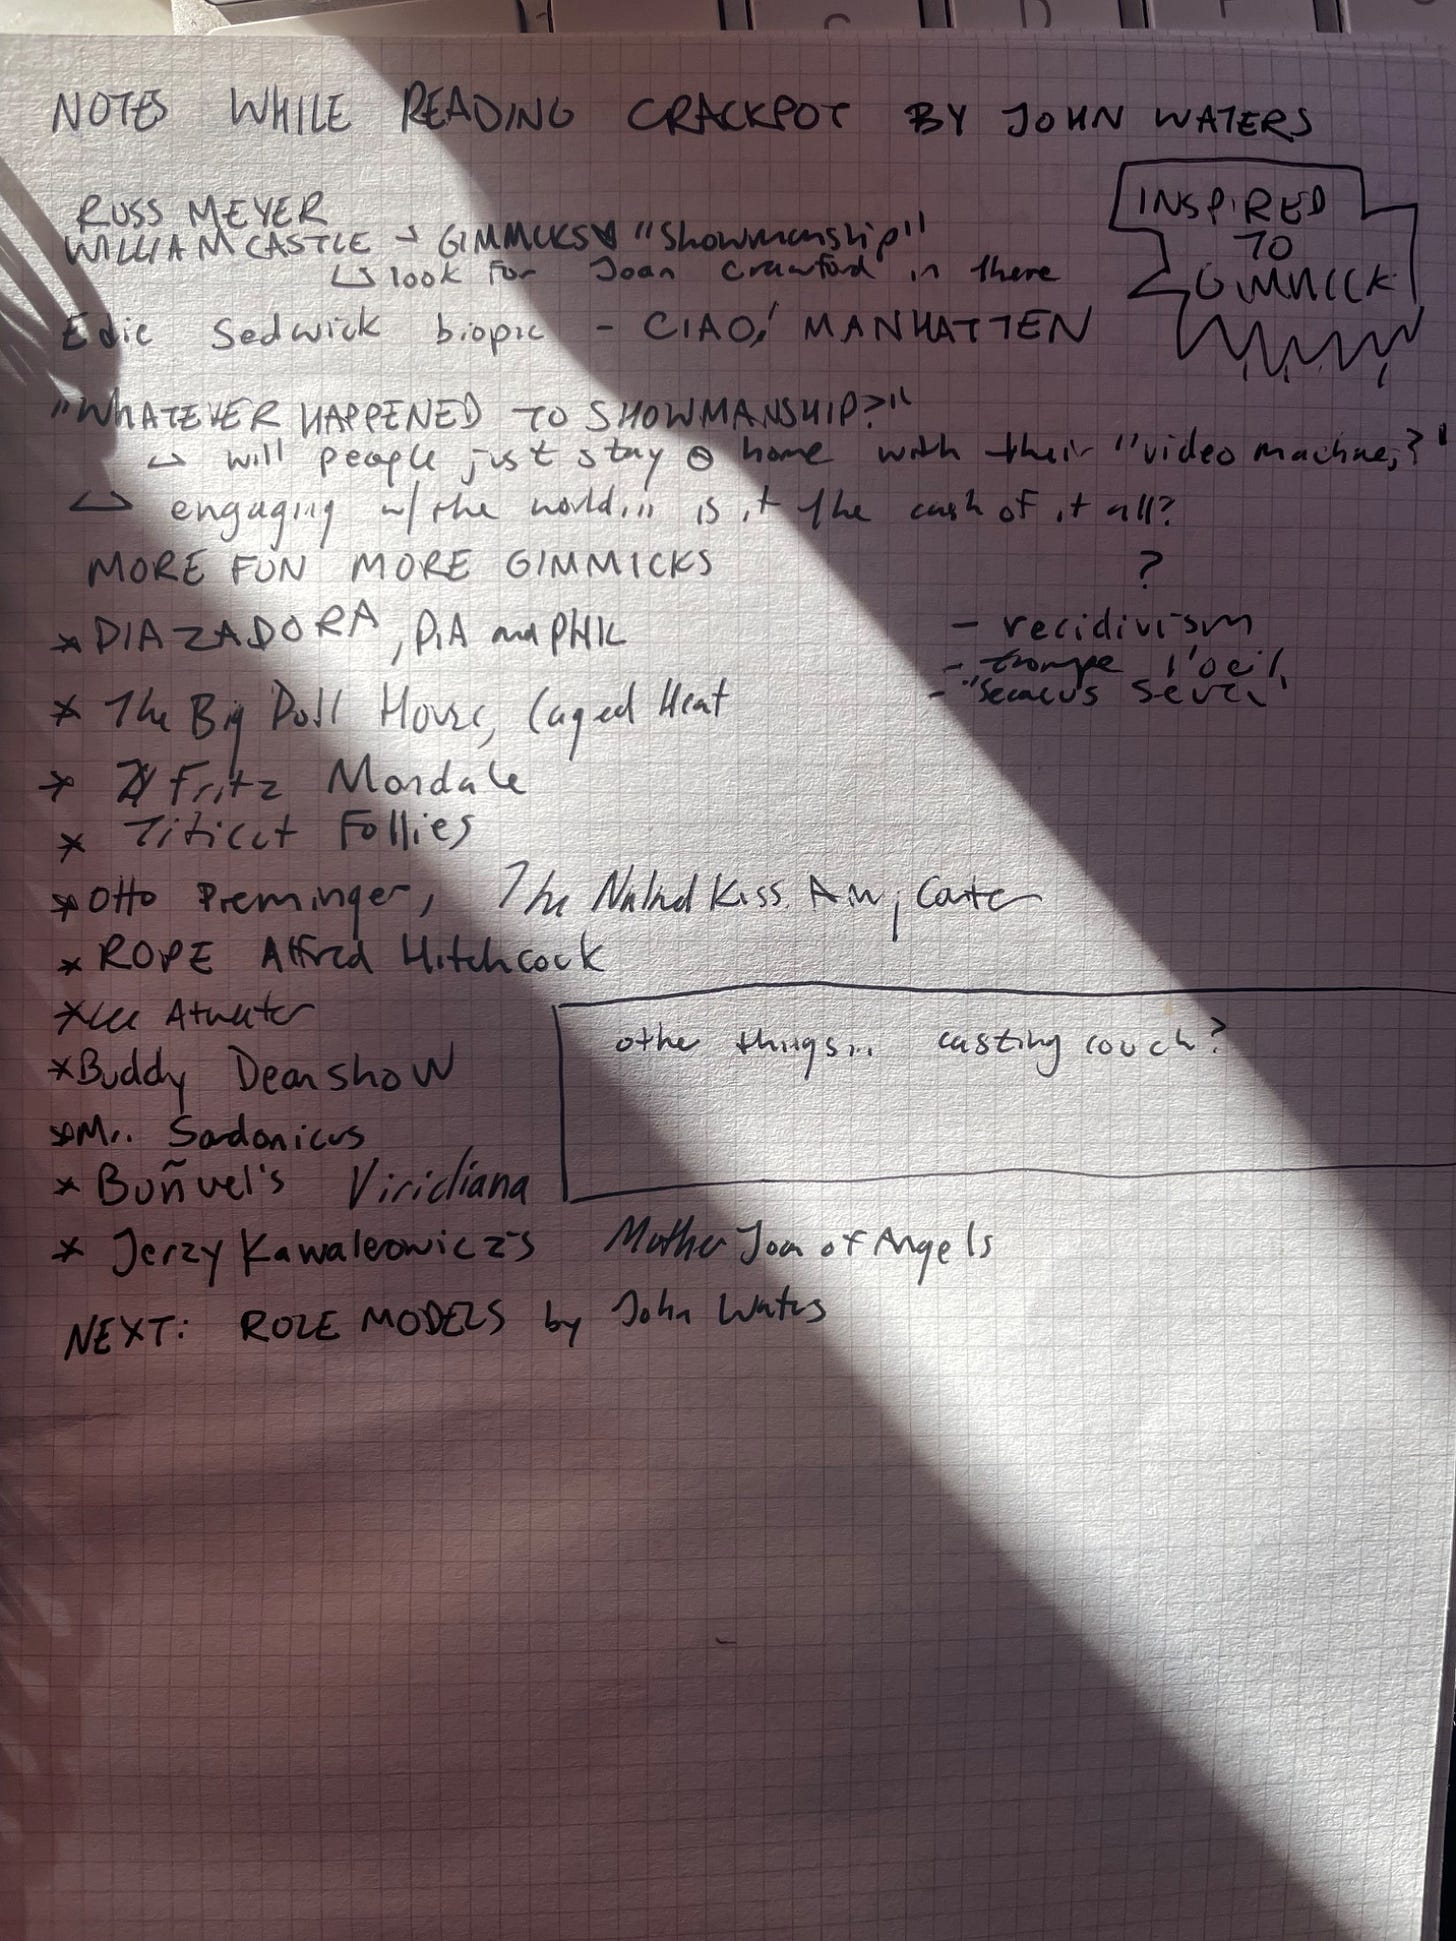 NOTES WHILE READING CRACKPOT BY JOHN WATERS
RUSS MEYER
WILLIAM CASTLE → GIMMICKS "Showmanship"
↳ look for Joan Crawford in there
INSPIRED
TO
GIMMICK
Edie Sedwick biopic - CIAO! MANHATTEN
"WHATEVER HAPPENED TO SHOWMANSHIP?"
↳ will people just stay @ home with their "video machines?"
↳ engaging w/ the world... is it the of it all?
MORE FUN MORE GIMMICKS
?
- recidivism
- trompe l'oeil
- "Secacus Seven"
* DIA ZADORA, PIA and PHIL
* The Big Doll House, Caged Heat
* Fritz Mondale
* Titicut Follies
* Otto Preminger, The Naked Kiss, Carter
* ROPE Alfred Hitchcock
* Lee Atwater
* Buddy Dean show
* Mr. Sadonicus
* Buñuel's Viridiana
* Jerzy Kawalerowicz's Mother Joan of Angels
other things... casting couch?
NEXT: ROLE MODELS by John Waters